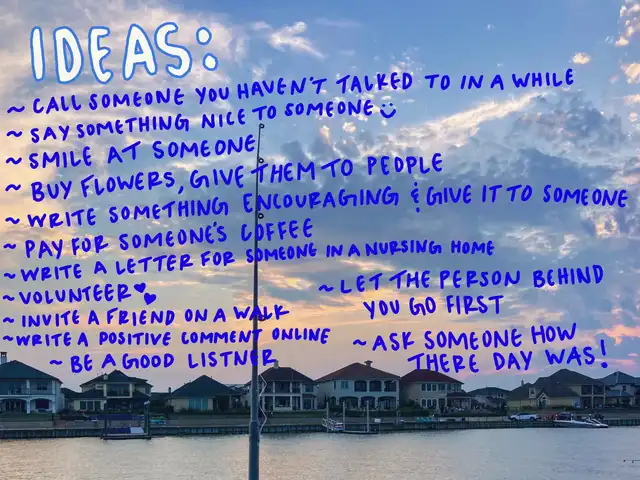 IDEAS:
~ CALL SOMEONE YOU HAVEN'T TALKED TO IN A WHILE
~ SAY SOMETHING NICE TO SOMEONE
~ SMILE AT SOMEONE
~ BUY FLOWERS, GIVE THEM TO PEOPLE
~ WRITE SOMETHING ENCOURAGING & GIVE IT TO SOMEONE
~ PAY FOR SOMEONE'S COFFEE
~ WRITE A LETTER FOR SOMEONE IN A NURSING HOME
~ VOLUNTEER
~ INVITE A FRIEND ON A WALK
~ WRITE A POSITIVE COMMENT ONLINE
~ BE A GOOD LISTNER
~ LET THE PERSON BEHIND
YOU GO FIRST
~ ASK SOMEONE HOW
THERE DAY WAS!